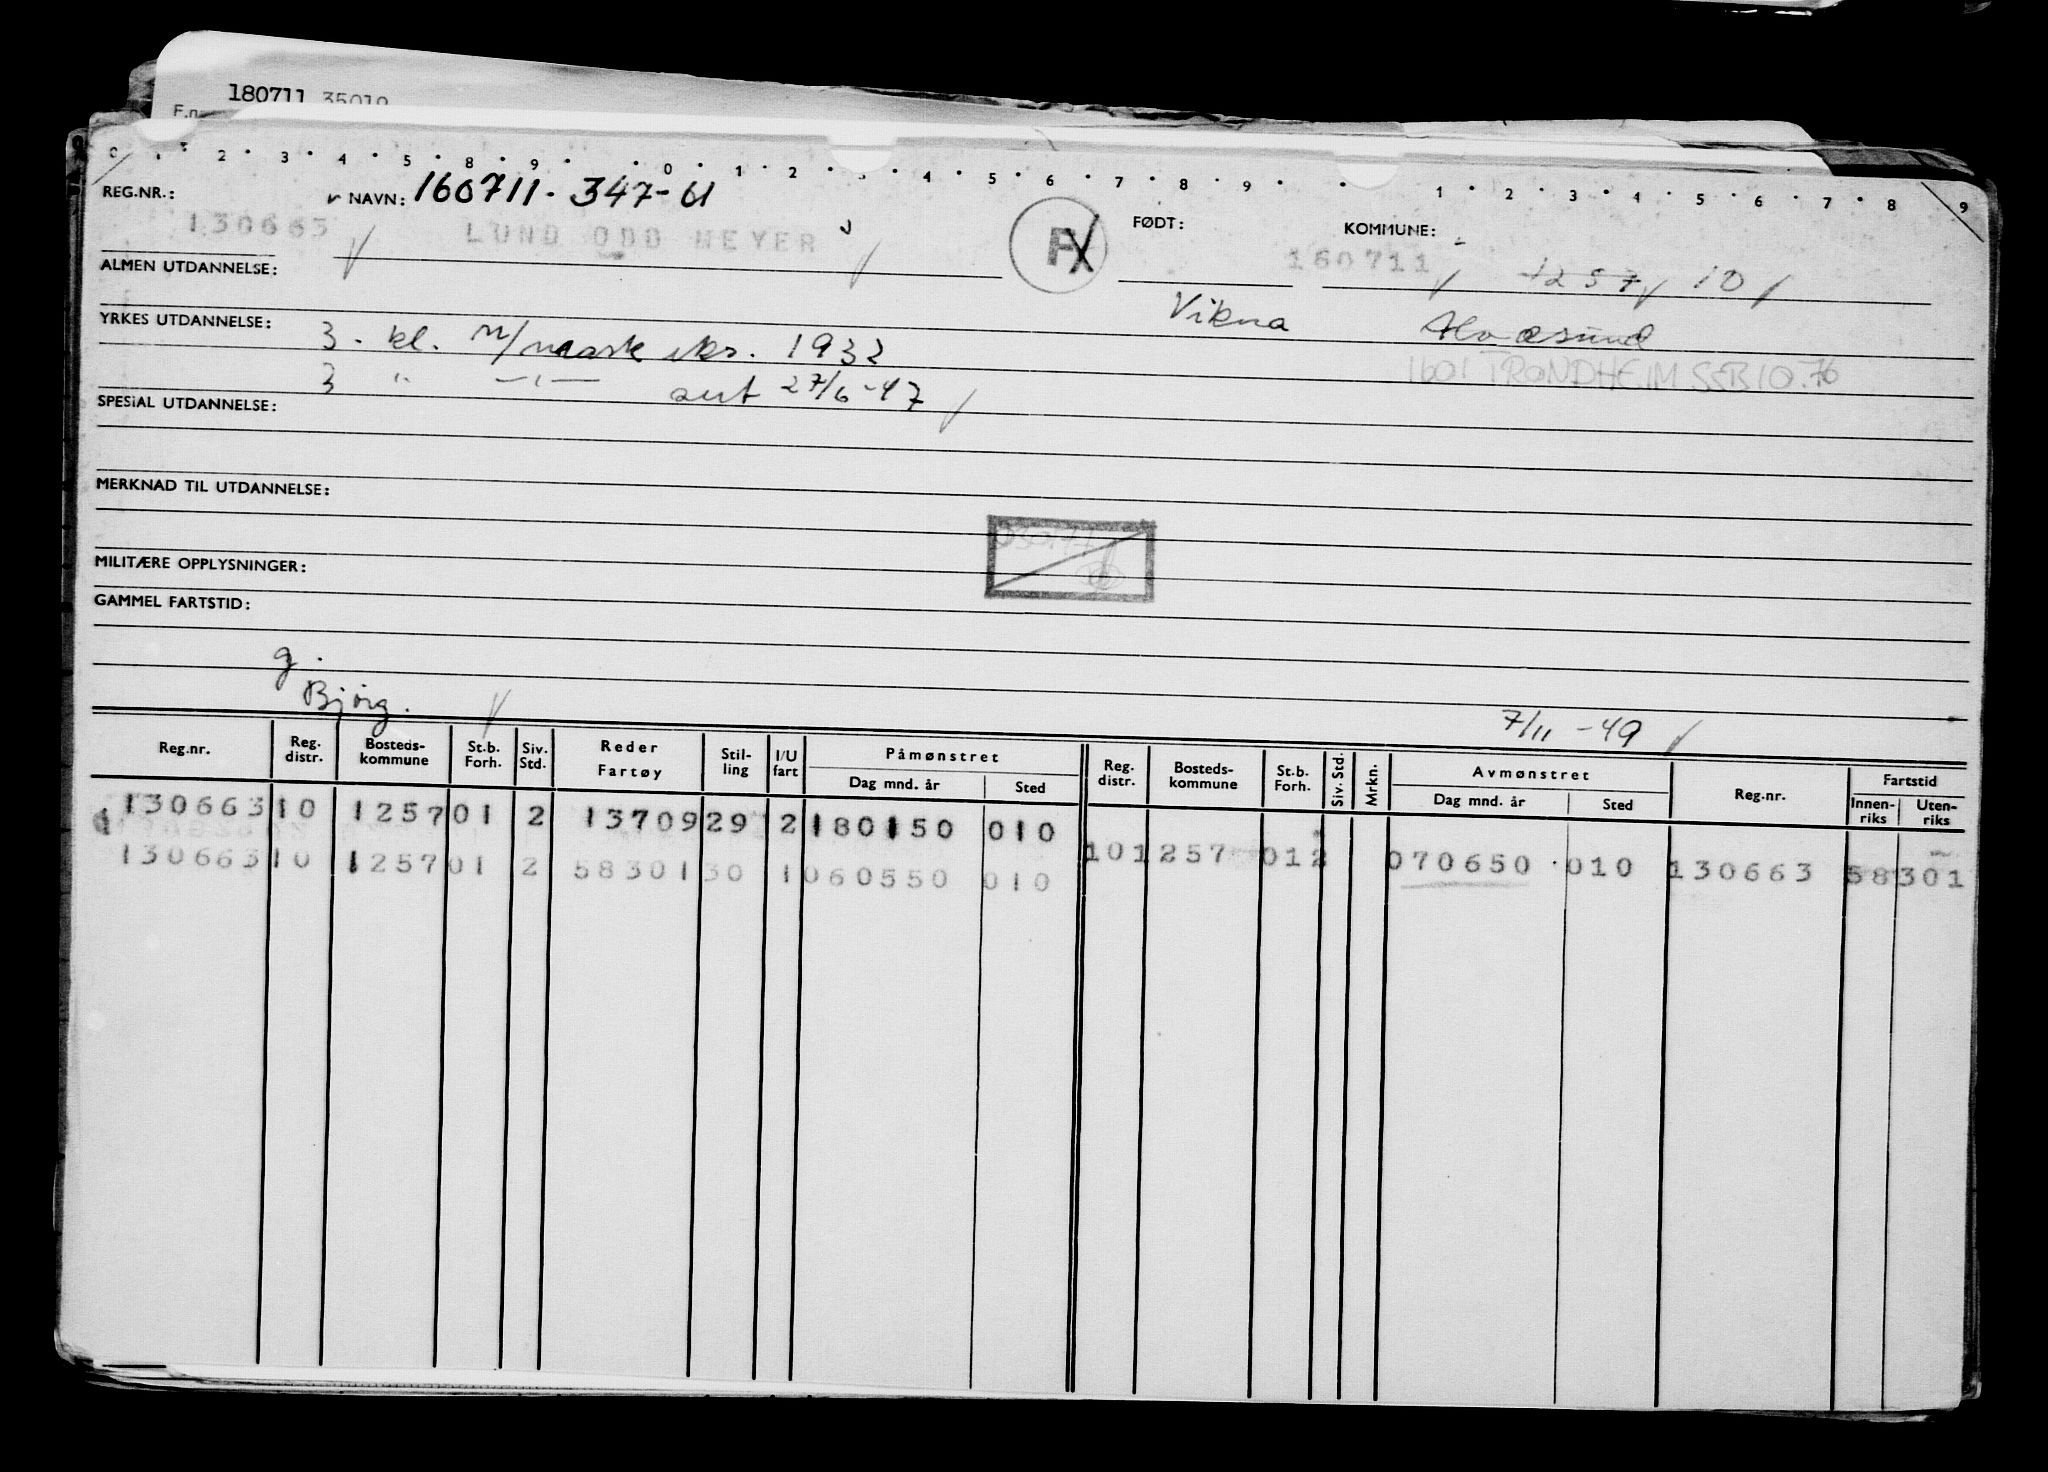 180711 35010
F.n
0 1 2 3 4 5 8 9 0 1 2 3 4 5 6 7 8 9 1 2 3 4 5 6 7 8 9
REG.NR.: NAVN: 160711-347-61 FØDT: KOMMUNE:
130663 LUND ODD MEYER F 160711 1257 10
ALMEN UTDANNELSE:
Vikna
YRKES UTDANNELSE: 3. kl. m/mask eks. 1932
1601 TRONDHEIM SEB 10.76
3 " —"— aut 27/6-47
SPESIAL UTDANNELSE:
MERKNAD TIL UTDANNELSE:
MILITÆRE OPPLYSNINGER:
GAMMEL FARTSTID:
g.
Bjørg.
7/11-49
Reg.nr. Reg. distr. Bosteds-kommune St.b. Forh. Siv. Std. Reder Fartøy Stil-ling I/U fart Påmønstret Dag mnd. år Sted Reg. distr. Bosteds-kommune St.b. Forh. Siv. Std. Mrkn. Avmønstret Dag mnd. år Sted Reg.nr. Fartstid Innen-riks Uten-riks
130663 10 1257 01 2 13709 29 2 180150 010
130663 10 1257 01 2 58301 30 1 060550 010 10 1257 01 2 070650 010 130663 58301